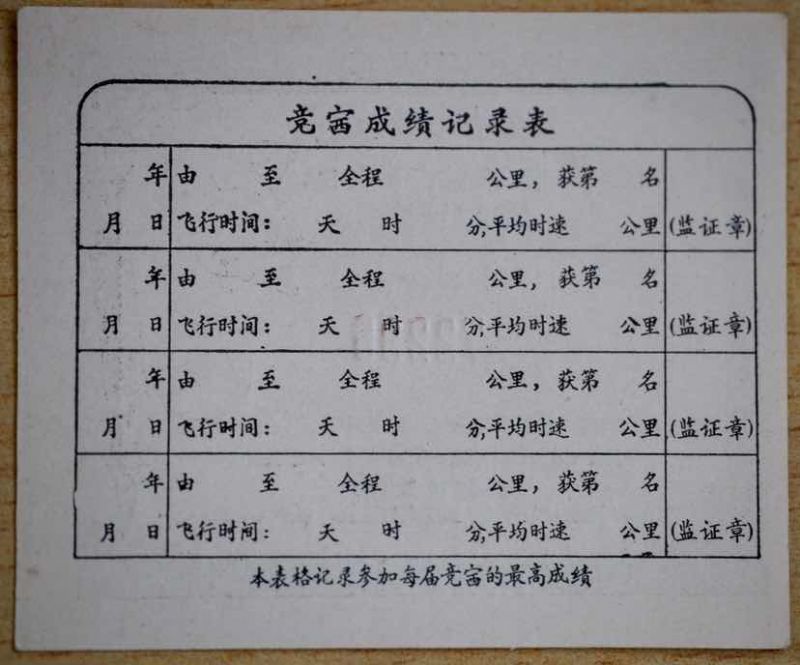 竞赛成绩记录表
年 由 至 全程 公里，获第 名
月 日 飞行时间： 天 时 分，平均时速 公里 (监证章)
年 由 至 全程 公里，获第 名
月 日 飞行时间： 天 时 分，平均时速 公里 (监证章)
年 由 至 全程 公里，获第 名
月 日 飞行时间： 天 时 分，平均时速 公里 (监证章)
年 由 至 全程 公里，获第 名
月 日 飞行时间： 天 时 分，平均时速 公里 (监证章)
本表格记录参加每届竞赛的最高成绩